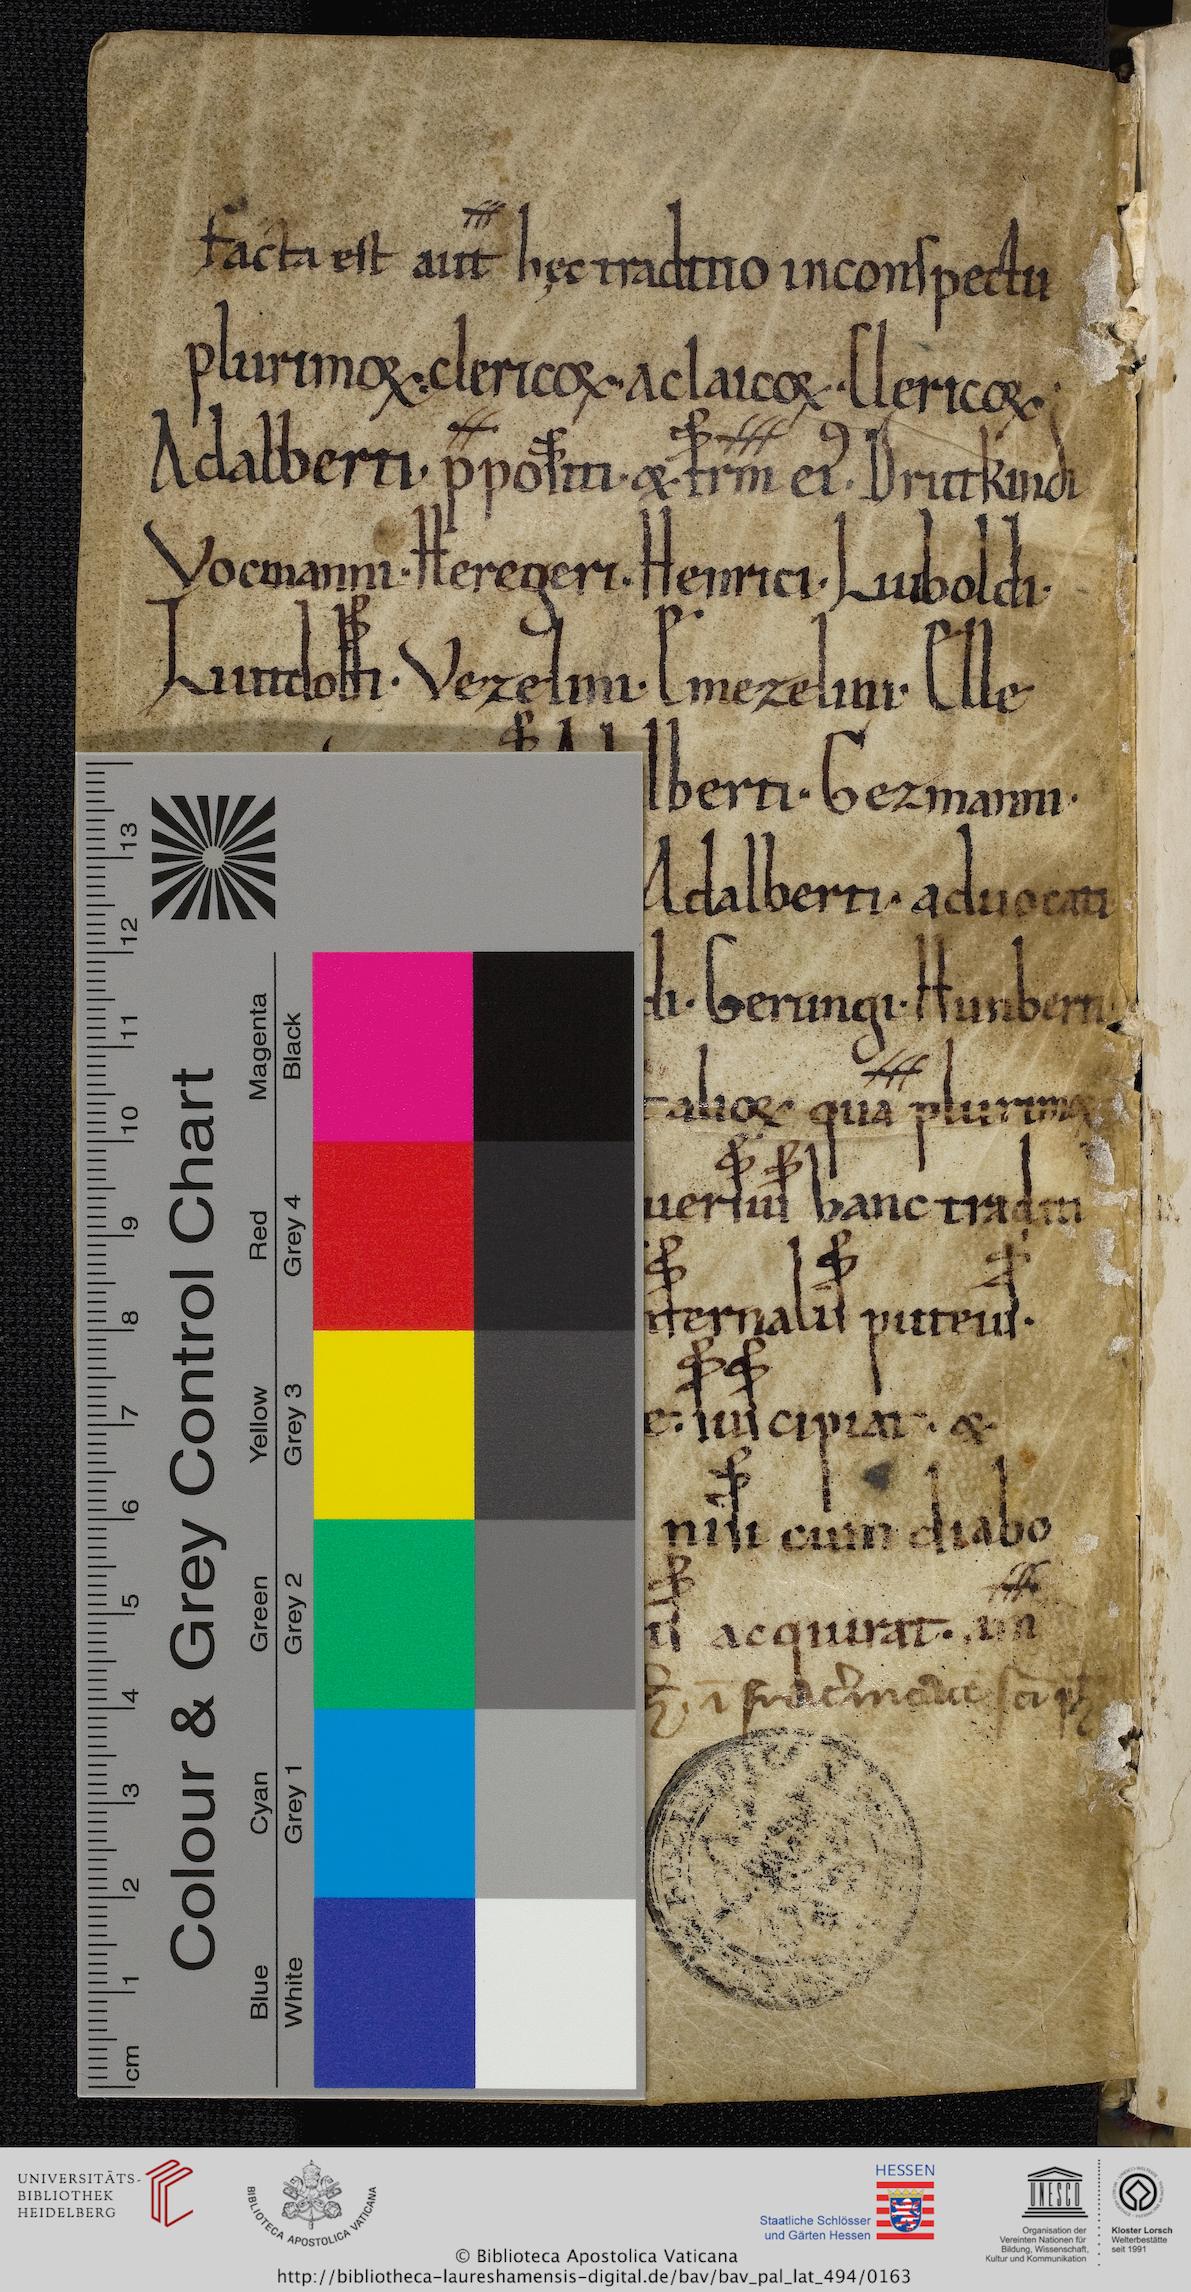 facta est aut̅ hęc traditio inconspectu
plurimoꝝ. clericoꝝ. ac laicoꝝ. Clericoꝝ;
Adalberti. p̄positi. & fr̅m ei᾿. Druitkindi
Vocmanni. Heregeri. Henrici. Luiboldi.
Luitdolfi. Vezelini. Emezelini. Elle
lberti. Gezmanni.
Adalberti. aduocati
di. Gerungi. Hunberti
alioꝝ qua plurimoꝝ
uersus hanc traditi
infernalis puteus.
suscipiat. &
nisi cum diabo
acquirat.
Colour & Grey Control Chart
Magenta Black
Red Grey 4
Yellow Grey 3
Green Grey 2
Cyan Grey 1
Blue White
cm 1 2 3 4 5 6 7 8 9 10 11 12 13
UNIVERSITÄTS-
BIBLIOTHEK
HEIDELBERG
BIBLIOTECA APOSTOLICA VATICANA
HESSEN
Staatliche Schlösser
und Gärten Hessen
UNESCO
Organisation der
Vereinten Nationen für
Bildung, Wissenschaft,
Kultur und Kommunikation
Kloster Lorsch
Welterbestätte
seit 1991
© Biblioteca Apostolica Vaticana
http://bibliotheca-laureshamensis-digital.de/bav/bav_pal_lat_494/0163